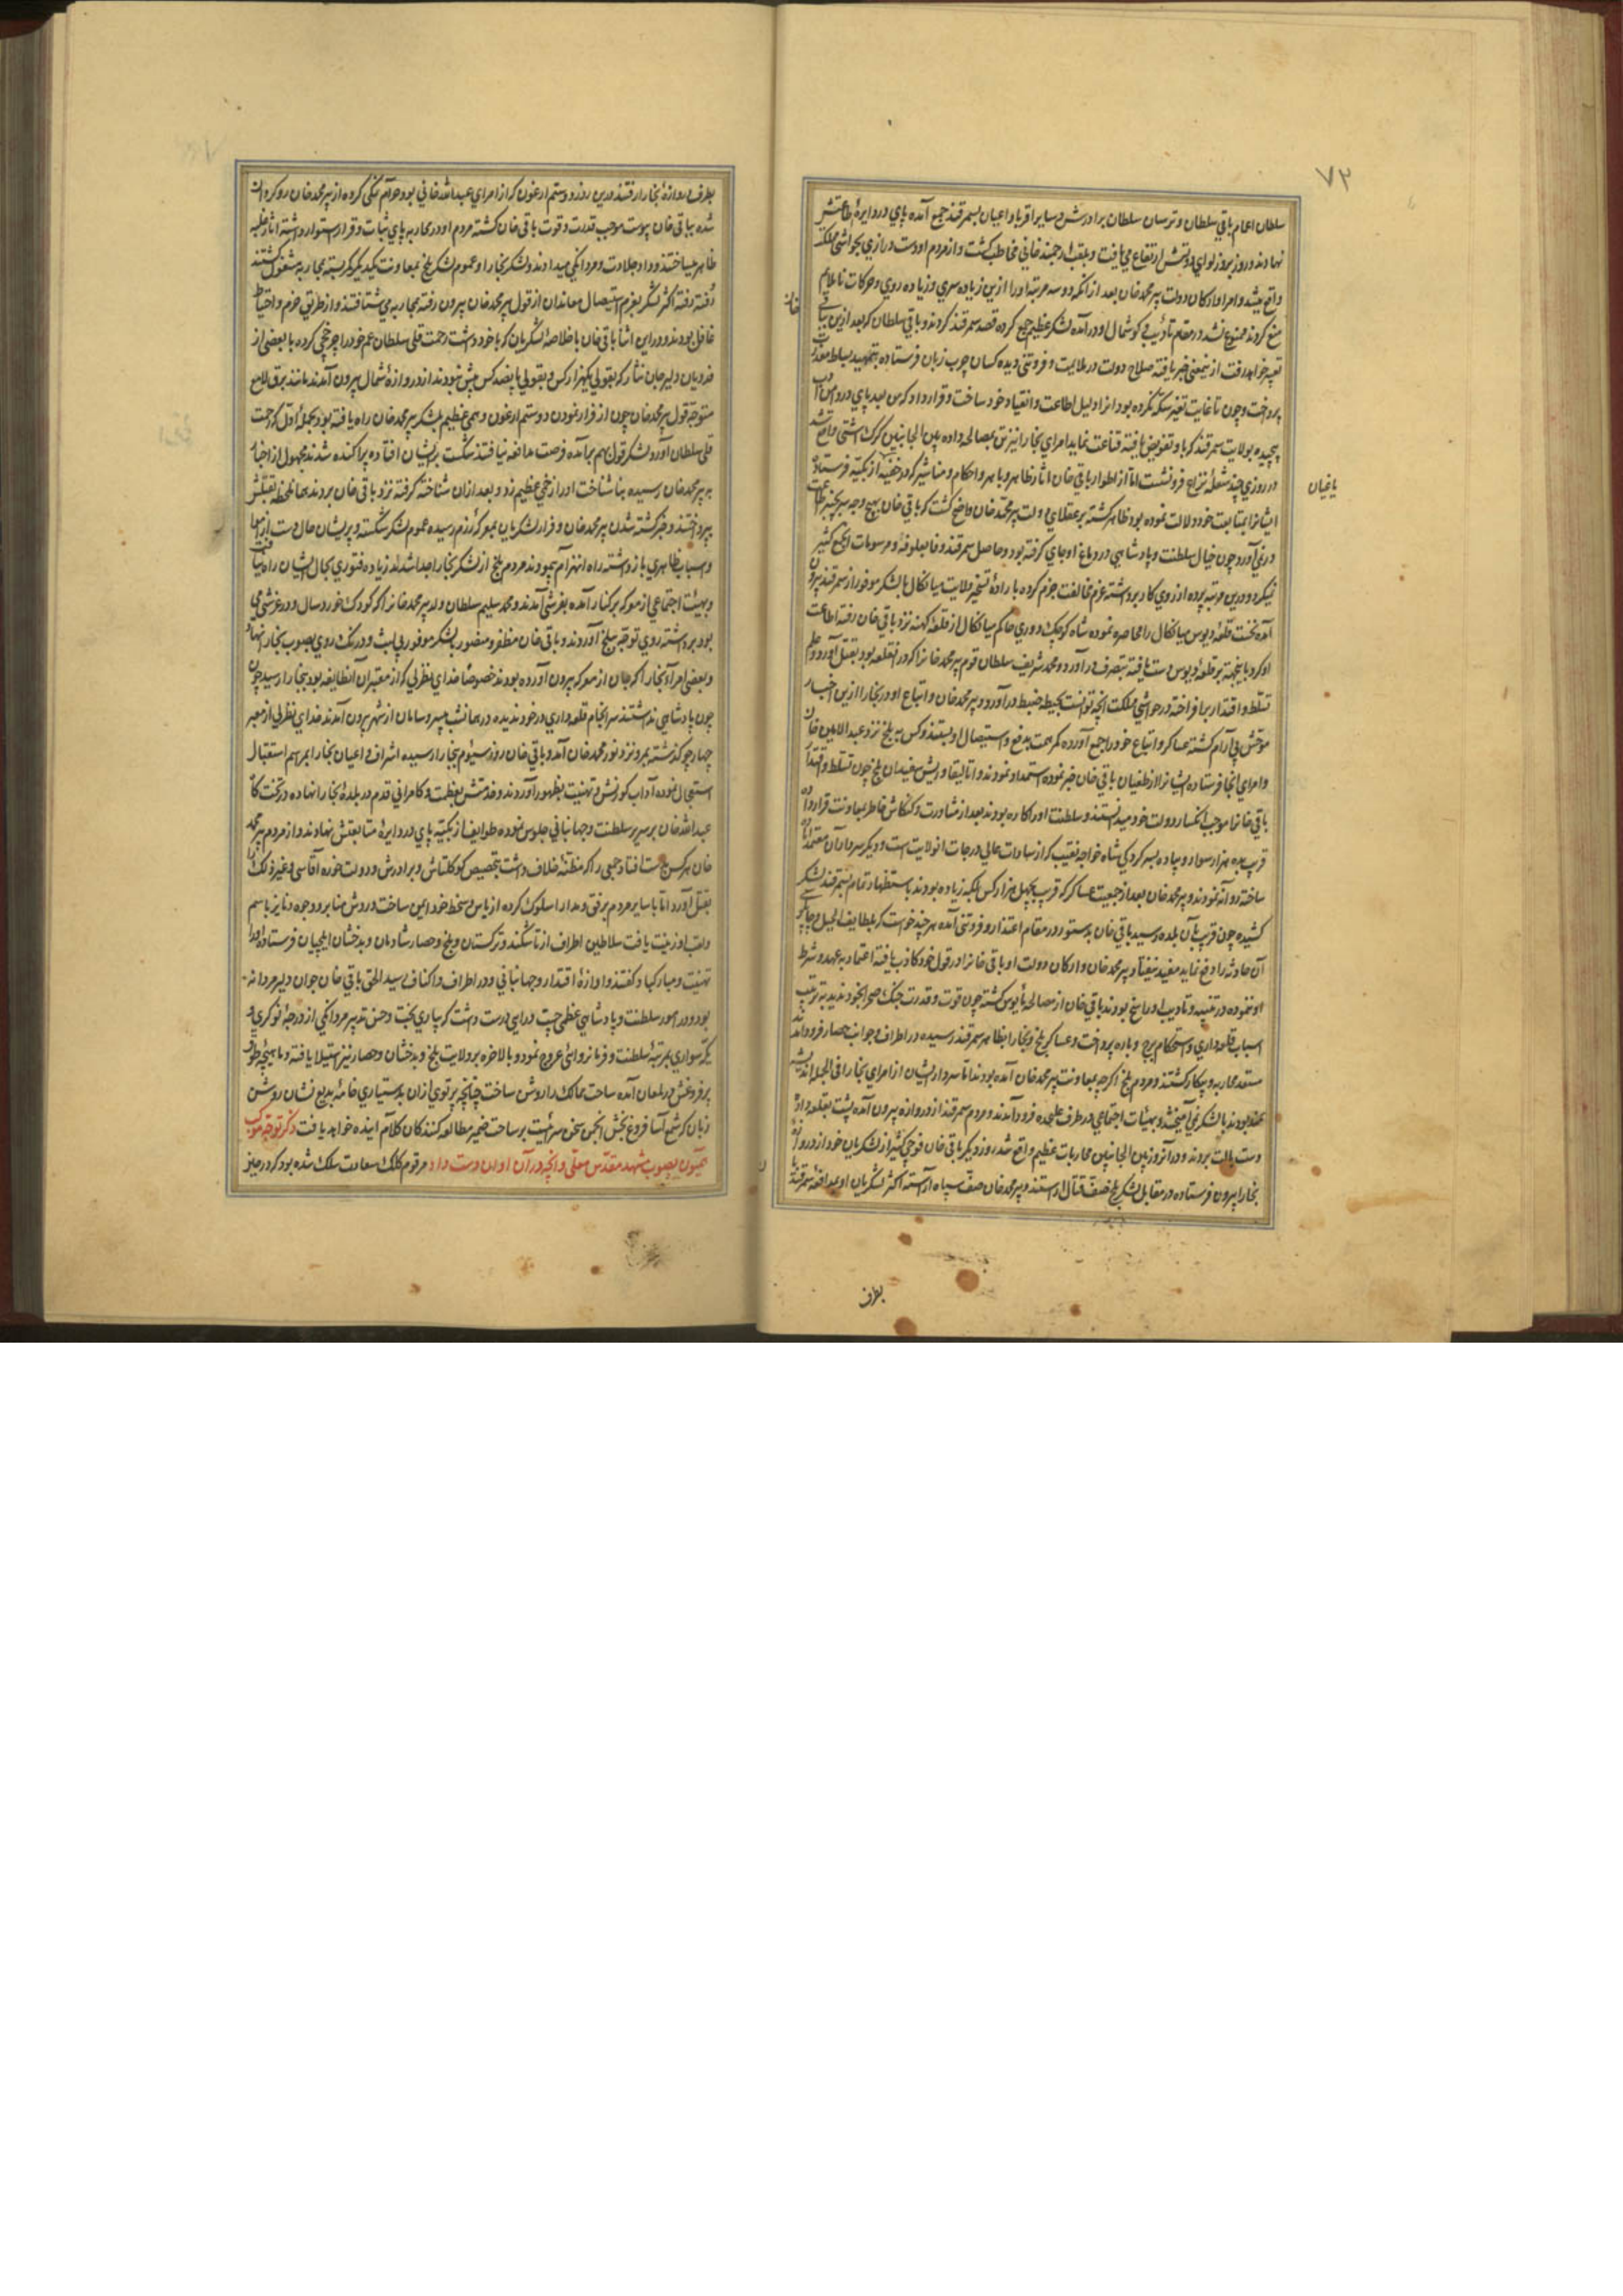 ٧٣
سلطان اعمام باقي سلطان و ترسان سلطان برادرش و ساير اقربا و اعيان بسمرقند جمع آمده پاي در دايرهٔ طاعتش
نهادند و روز بروز لواي دولتش ارتفاع مي يافت و بلقب ارجمند خاني مخاطب گشت و از مردم او دست درازي بحواشي ملک
واقع ميشد و امرا و ارکان دولت پير محمد خان بعد از آنکه دو سه مرتبه او را ازين زياده سري و زياده روي و حرکات ناملايم
منع کردند ممنوع نشد در مقام تأديب و گوشمال او درآمده لشکر عظيم جمع کرده قصد سمرقند کردند و باقي سلطان که بعد ازين بباقي
خان
تعبير خواهد رفت ازينمعني خبر يافته صلاح دولت در ملايمت و فروتني ديده کسان چرب زبان فرستاده بتمهيد بساط معذرت
پرداخت و چون تا غايت تغيير سکه نکرده بود آنرا دليل اطاعت و انقياد خود ساخت و قرار داد که من بعد پاي در دامن ادب
پيچيده بولايت سمرقند که باو تفويض يافته قناعت نمايد امراي بخارا نيز تن بمصالحه داده بين الجانبين گرگ آشتي واقع شد
در روزي چند شعلهٔ نزاع فرو نشست اما از اطوار باقي خان آثار ظاهر و باهر و احکام و مناشير که در خفيه از بکيه فرستاده
ياغيان
ايشانرا بمتابعت خود دلالت نموده بود ظاهر گشته بر عقلاي دولت پير محمد خان واضح گشت که باقي خان بهيچ وجه سر بچنبر اطاعت
در نمي آورد چون خيال سلطنت و پادشاهي در دماغ او جاي گرفته بود و حاصل سمرقند وفا بعلوفه و مرسومات آن جمع کثير
نميکرد و درين مرتبه پرده از روي کار برداشته عزم مخالفت جزم کرده بارادهٔ تسخير ولايت ميانکال با لشکر موفور از سمرقند بيرون
آمده نخست قلعهٔ دبوس ميانکال را محاصره نموده شاه کوچک دوري حاکم ميانکال از قلعهٔ کهنه نزد باقي خان رفته اطاعت
او کرد باينجهة بر قلعهٔ دبوس دست يافته بتصرف درآورد و محمد شريف سلطان قوم پير محمد خانرا که در آنقلعه بود بقتل آورد و علم
تسلط و اقتدار برافراخته در حواشي مملکت آنچه توانست بحيطهٔ ضبط درآورد و پير محمد خان و اتباع او در بخارا ازين اخبار
موحش بي آرام گشته عساکر و اتباع خود را جمع آورده کمر همت بدفع و استيصال او بستند و کس ببلخ نزد عبد الامين خان
و امراي آنجا فرستاده ايشانرا از طغيان باقي خان خبر نموده استمداد نمودند و اتاليقا و ريش سفيدان بلخ چون تسلط و اقتدار
باقي خانرا موجب انکسار دولت خود ميدانستند و سلطنت او را کاره بودند بعد از مشاورت و کنکاش خاطر بمعاونت قرار داده
قريب به ده هزار سوار و پياده بسرکردگي شاه خواجه نقيب که از سادات عالي درجات آنولايت است و ديگر سرداران معتمد
ساخته روانه نمودند و پير محمد خان بعد از جمعيت عساکر که قريب بچهل هزار کس بلکه زياده بودند باستظهار تمام بسمرقند لشکر
کشيده چون قريب بآن بلده رسيد باقي خان بدستور در مقام اعتذار و فروتني آمده هر چند خواست که بلطايف الحيل و چاپلوسي
آن حادثه را دفع نمايد مفيد نيفتاد و پير محمد خان و ارکان دولت او باقي خانرا در قول خود کاذب يافته اعتماد بعهد و شرط
او ننموده در تنبيه و تاديب او راسخ بودند باقي خان از مصالحه مأيوس گشته چون قوت و قدرت جنگ صحرا بخود نديد به ترتيب
اسباب قلعه داري و استحکام برج و باره پرداخت و عساکر بلخ و بخارا بظاهر سمرقند رسيده در اطراف و جوانب حصار فرود آمدند
مستعد محاربه و پيکار گشتند و مردم بلخ اگرچه بمعاونت پير محمد خان آمده بودند اما سرداران ايشان از امراي بخارا في الجمله انديشه
مند بودند با لشکر نمي آميختند و بهيأت اجتماعي در طرف عليحده فرود آمدند و مردم سمرقند از دروازه بيرون آمده پشت بقلعه داده
دست بآلات بردند و در آنروز بين الجانبين محاربات عظيم واقع شد روز ديگر باقي خان فوجي کثير از لشکريان خود از دروازهٔ
بخارا بيرون فرستاده در مقابل لشکر بلخ صف قتال آراستند و پير محمد خان صف سپاه آراسته اکثر لشکريان او بمدافعهٔ سمرقنديان
بطرف
بطرف دروازهٔ بخارا رفتند درين روز دوستم ارغون که از امراي عبد الله خاني بود و حرام نمکي کرده از پير محمد خان رو گردان
شده بباقي خان پيوست موجب قدرت و قوت باقي خان گشته مردم او در محاربه پاي ثبات و قرار استوار داشته آثار غلبه
ظاهر ميساختند و داد جلادت و مردانگي ميدادند و لشکر بخارا و عموم لشکر بلخ بمعاونت يکديگر کمر بسته بمحاربه مشغول گشتند
رفته رفته اکثر لشکر بعزم استيصال معاندان از قول پير محمد خان بيرون رفته بمحاربه مي شتافتند و از طريق حزم و احتياط
غافل بودند و در اين اثنا باقي خان با خلاصهٔ لشکريان که با خود داشت رحمت قلي سلطان عم خود را چرخچي کرده با بعضي از
فدويان و لير جان نثار که بقولي يکهزار کس و بقولي پانصد کس بيش نبودند از دروازهٔ شمال بيرون آمدند مانند برق لامع
متوجه قول پير محمد خان چون از فرار نمودن دوستم ارغون وهمي عظيم بلشکر پير محمد خان راه يافته بود بحملهٔ اول که رحمت
قلي سلطان آورد لشکر قول بهم برآمده فرصت مدافعه نيافتند شکست بر ايشان افتاده پراکنده شدند مجهولي از اجناد
به پير محمد خان رسيده ناشناخت او را زخمي عظيم زد و بعد از آن شناخته گرفته نزد باقي خان بردند همان لحظه بقتلش
پرداختند و خبر کشته شدن پير محمد خان و فرار لشکريان بمعرکهٔ رزم رسيده عموم لشکر شکسته و پريشان حال دست از همه
و اسباب ظاهري باز داشته راه انهزام پيمودند مردم بلخ از لشکر بخارا جدا شده زياده فتوري بحال ايشان راه نيافت
و بهيئت اجتماعي از معرکه برکنار آمده بغرشي آمدند و محمد سليم سلطان ولد پير محمد خانرا که کودک خورد سال و در غرشي مي
بود برداشته روي توجه ببلخ آوردند و باقي خان مظفر و منصور با لشکر موفور بي لبث و درنگ روي بصوب بخارا نهاد
و بعضي امراء بخارا که جان از معرکه بيرون آورده بودند خصوصا خداي نظر بي که از معتبران آنطايفه بود ببخارا رسيد چون
چون پادشاهي نداشتند سرانجام قلعه داري در خود نديده در همانشب بي سر و سامان از شهر بيرون آمدند خداي نظر بي از معبر
چهار جو گذشته بمرو نزد نور محمد خان آمد و باقي خان روز سيوم ببخارا رسيده اشراف و اعيان بخارا بمراسم استقبال
استعجال نموده آداب کورنش و تهنيت بظهور آوردند و خدمتش بعظمت و کامراني قدم در بلدهٔ بخارا نهاده در تختگاه
عبد الله خان بر سرير سلطنت و جهانباني جلوس نموده طوايف ازبکيه پاي در دايرهٔ متابعتش نهادند و از مردم پير محمد
خان هر کس بدست افتاد جمعي را که مظنهٔ خلاف داشت بتخصيص کوکلتاش و برادرش و دولت خوره آقاسي و غير ذلک
بقتل آورد اما با ساير مردم برفق و مدارا سلوک کرده از بأس و سخط خود ايمن ساخت و روش منابر و وجوه دنانير باسم
و لقب او زينت يافت سلاطين اطراف از تاشکند و ترکستان و بلخ و حصار شادمان و بدخشان ايلچيان فرستاده او را
تهنيت و مبارکباد گفتند و آوازهٔ اقتدار و جهانباني و در اطراف و اکناف رسيد الحق باقي خان جوان دلير مردانه
بود و در امور سلطنت و پادشاهي عظمي چست و رايي درست داشت که بياري بخت و حسن تدبير مردانگي از درجهٔ نوکري و
يکه سواري بمرتبهٔ سلطنت و فرمانروائي عروج نمود و بالاخره بر ولايت بلخ و بدخشان و حصار نيز استيلا يافته و ماهيچهٔ طوق
پر فروغش در لمعان آمده ساحت ممالک را روشن ساخت چنانچه پرتوي از آن بدستياري خامهٔ بديع نشان روشن
زبان که شمع آسا فروغ بخش انجمن سخن سرائيست بر ساحت ضمير مطالعه کنندگان کلام آينده خواهد يافت ذکر توجه موکب
همايون بصوب مشهد مقدس معلی و آنچه در آن اوان دست داد مرقوم کلک سعادت سلک شده بود که در حين